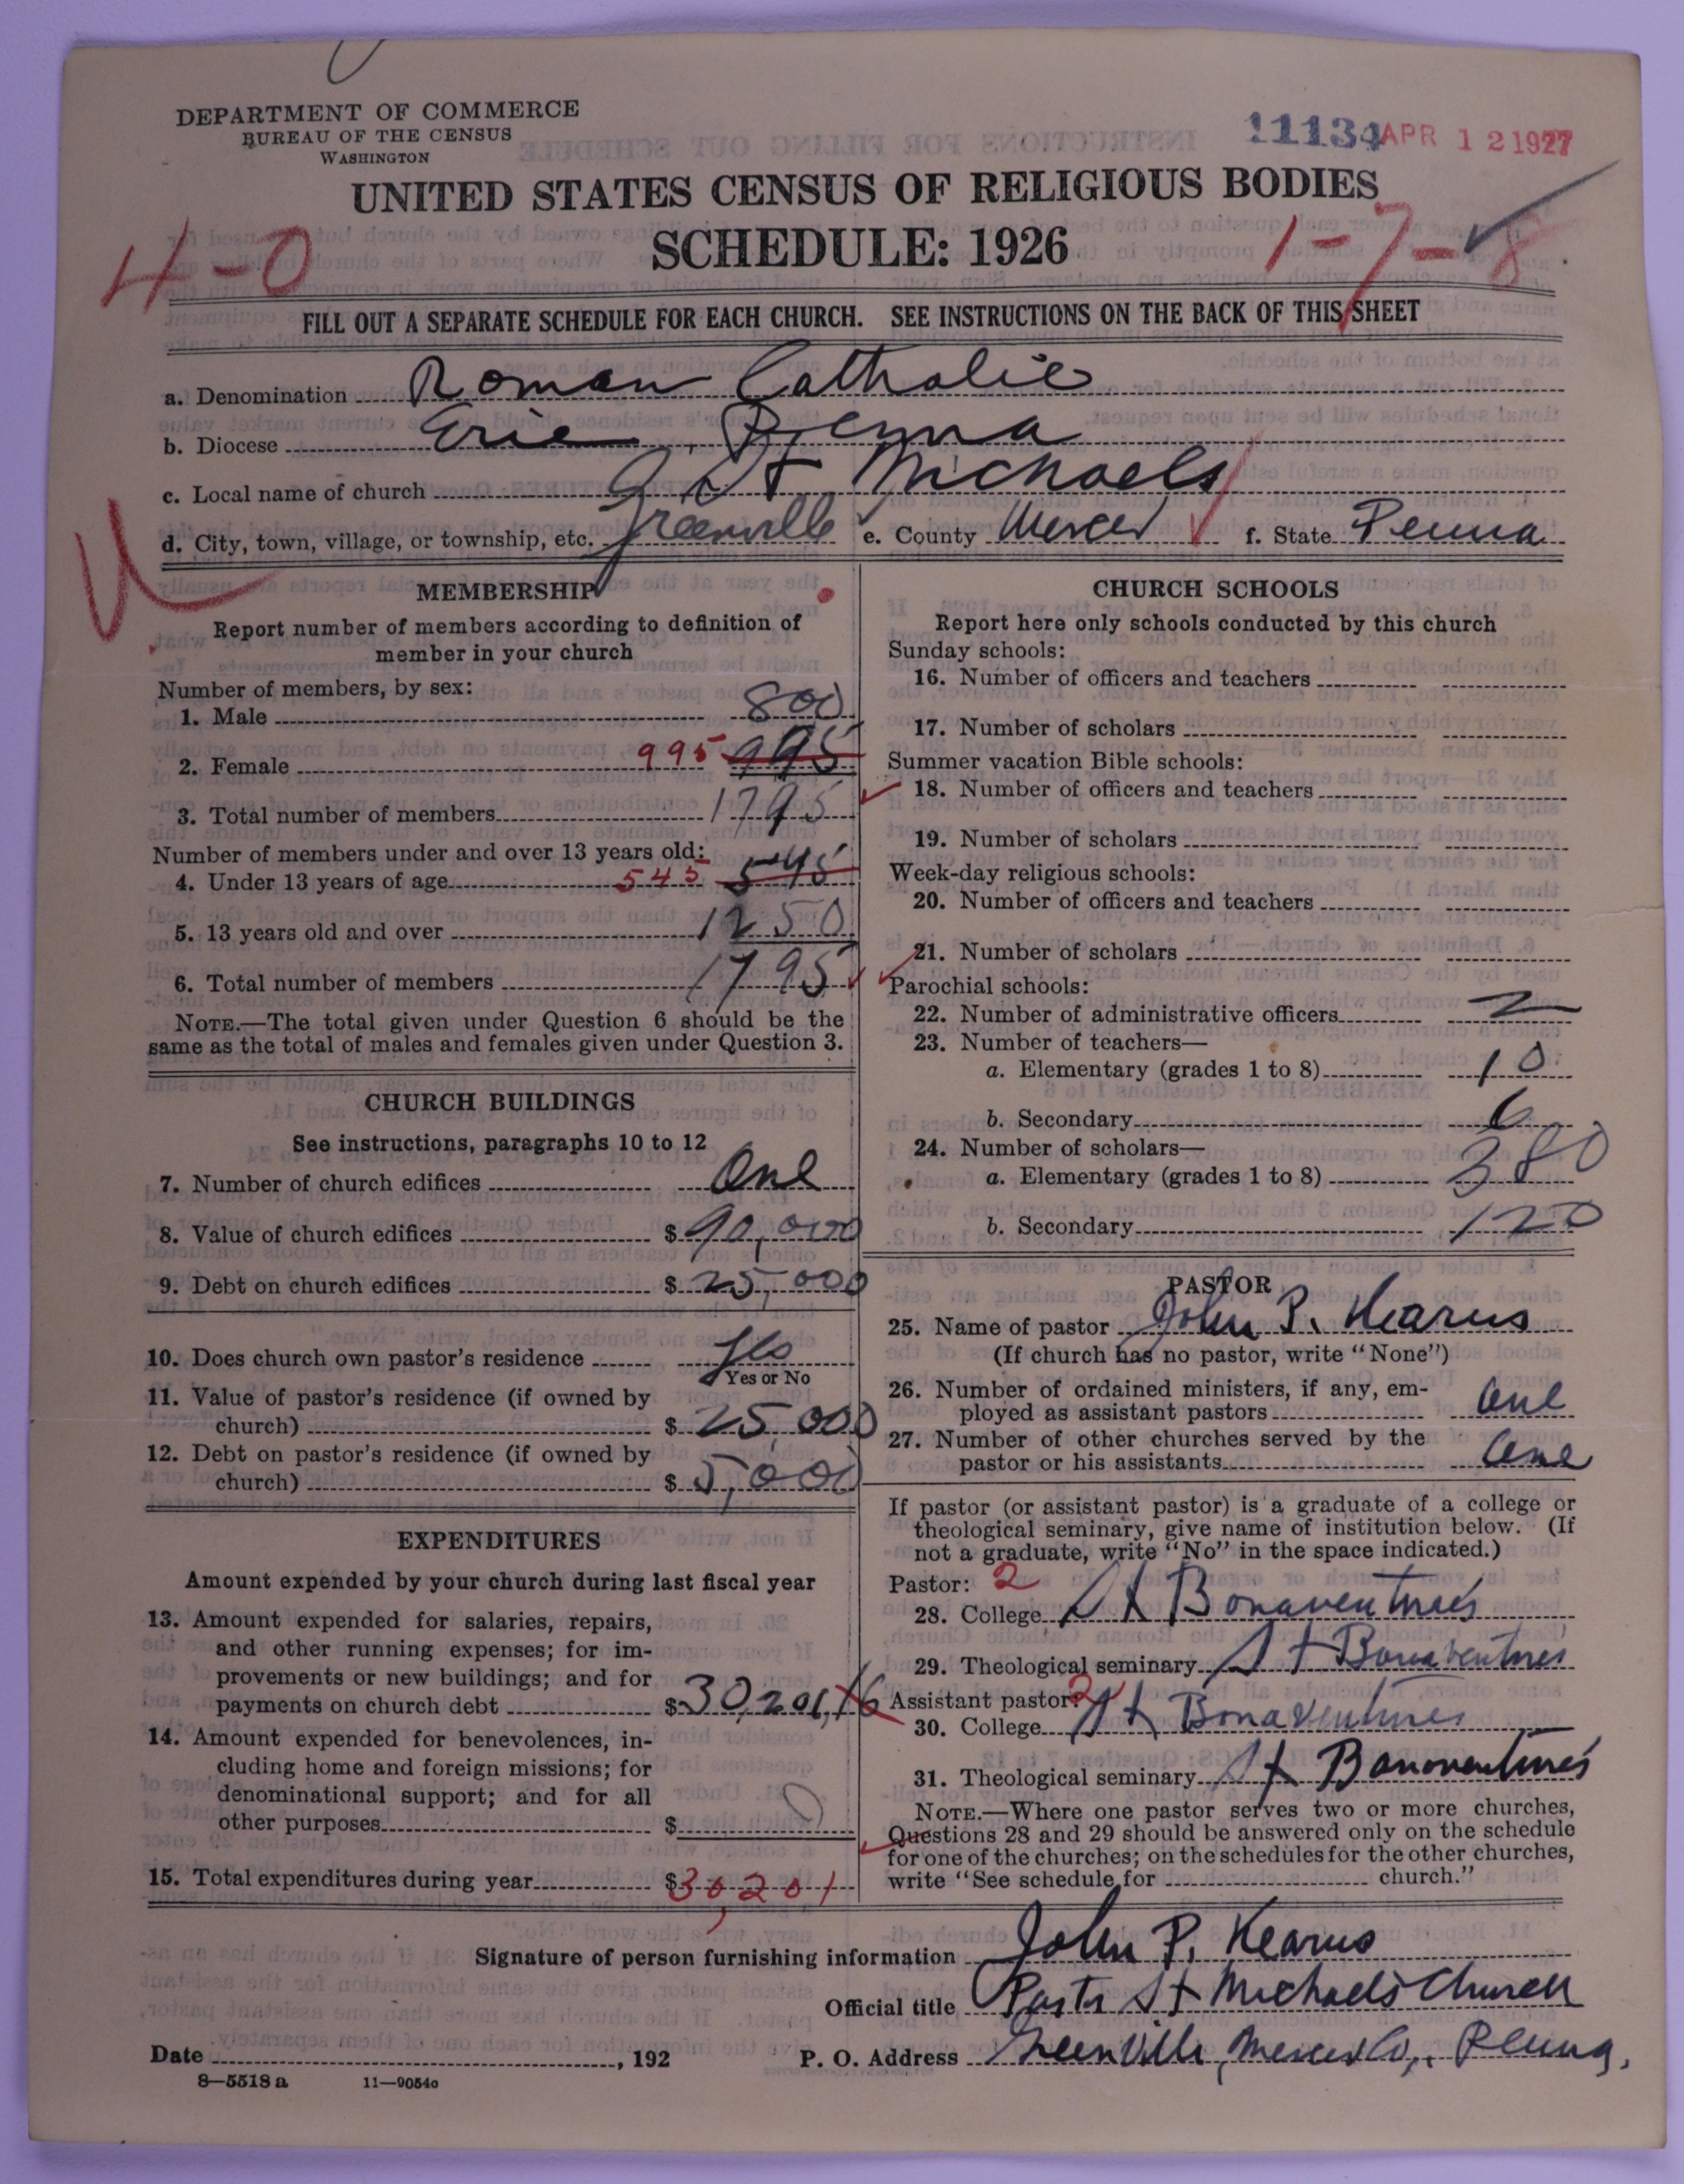 DEPARTMENT OF COMMERCE
BUREAU OF THE CENSUS
WASHINGTON
11134 APR 12 1927
UNITED STATES CENSUS OF RELIGIOUS BODIES
SCHEDULE: 1926
4-0
1-7-8
FILL OUT A SEPARATE SCHEDULE FOR EACH CHURCH. SEE INSTRUCTIONS ON THE BACK OF THIS SHEET
a. Denomination Roman Catholic
b. Diocese Erie, Penna
c. Local name of church St Michaels
d. City, town, village, or township, etc. Greenville e. County Mercer f. State Penna
MEMBERSHIP
Report number of members according to definition of
member in your church
Number of members, by sex:
1. Male 800
2. Female 995 995
3. Total number of members 1795
Number of members under and over 13 years old:
4. Under 13 years of age 545 545
5. 13 years old and over 1250
6. Total number of members 1795
NOTE.—The total given under Question 6 should be the
same as the total of males and females given under Question 3.
CHURCH BUILDINGS
See instructions, paragraphs 10 to 12
7. Number of church edifices One
8. Value of church edifices $ 90,000
9. Debt on church edifices $ 25,000
10. Does church own pastor's residence Yes
Yes or No
11. Value of pastor's residence (if owned by
church) $ 25,000
12. Debt on pastor's residence (if owned by
church) $ 5,000
EXPENDITURES
Amount expended by your church during last fiscal year
13. Amount expended for salaries, repairs,
and other running expenses; for im-
provements or new buildings; and for
payments on church debt $ 30,201,
14. Amount expended for benevolences, in-
cluding home and foreign missions; for
denominational support; and for all
other purposes $ 0
15. Total expenditures during year $ 30,201
CHURCH SCHOOLS
Report here only schools conducted by this church
Sunday schools:
16. Number of officers and teachers
17. Number of scholars
Summer vacation Bible schools:
18. Number of officers and teachers
19. Number of scholars
Week-day religious schools:
20. Number of officers and teachers
21. Number of scholars
Parochial schools:
22. Number of administrative officers 2
23. Number of teachers—
a. Elementary (grades 1 to 8) 10
b. Secondary 6
24. Number of scholars—
a. Elementary (grades 1 to 8) 380
b. Secondary 120
PASTOR
25. Name of pastor John P. Kearns
(If church has no pastor, write "None")
26. Number of ordained ministers, if any, em-
ployed as assistant pastors One
27. Number of other churches served by the
pastor or his assistants One
If pastor (or assistant pastor) is a graduate of a college or
theological seminary, give name of institution below. (If
not a graduate, write "No" in the space indicated.)
Pastor: 2
28. College St Bonaventures
29. Theological seminary St Bonaventures
Assistant pastor: 2
30. College St Bonaventures
31. Theological seminary St Bonoventures
NOTE.—Where one pastor serves two or more churches,
Questions 28 and 29 should be answered only on the schedule
for one of the churches; on the schedules for the other churches,
write "See schedule for church."
Signature of person furnishing information John P. Kearns
Official title Pastor St Michaels Church
Date , 192
P. O. Address Greenville, Mercer Co., Penna.
8—5518 a 11—9054c